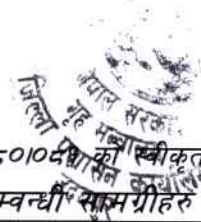 नेपाल सरकार
गृह मन्त्रालय
जिल्ला प्रशासन कार्यालय
को स्वीकृत
म्वन्धी सामग्रीहरु